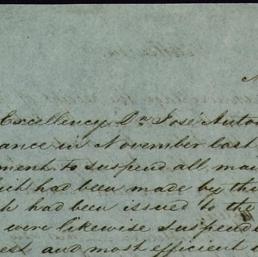 Excellency Dn José Anto
ance in November last
ment, to suspend all, ma
ich had been made by the
h had been issued to the
were likewise suspend
est and most efficient